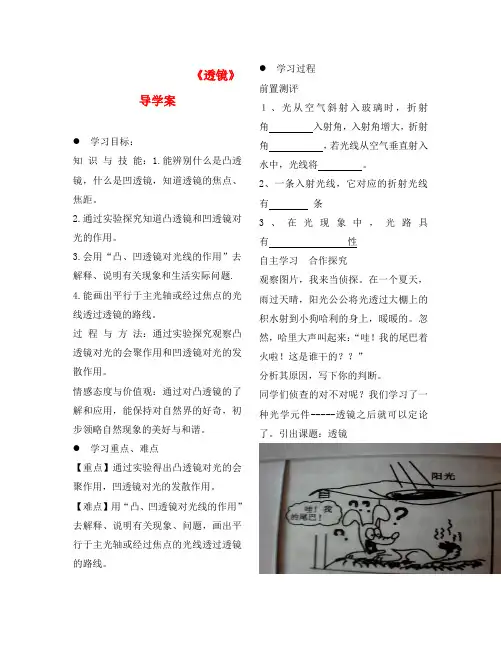 《透镜》
导学案
● 学习目标:
知识与技能:1.能辨别什么是凸透
镜,什么是凹透镜,知道透镜的焦点、
焦距。
2.通过实验探究知道凸透镜和凹透镜对
光的作用。
3.会用“凸、凹透镜对光线的作用”去
解释、说明有关现象和生活实际问题.
4.能画出平行于主光轴或经过焦点的光
线透过透镜的路线。
过程与方法:通过实验探究观察凸
透镜对光的会聚作用和凹透镜对光的发
散作用。
情感态度与价值观:通过对凸透镜的了
解和应用,能保持对自然界的好奇,初
步领略自然现象的美好与和谐。
● 学习重点、难点
【重点】通过实验得出凸透镜对光的会
聚作用,凹透镜对光的发散作用。
【难点】用“凸、凹透镜对光线的作用”
去解释、说明有关现象、问题,画出平
行于主光轴或经过焦点的光线透过透镜
的路线。
● 学习过程
前置测评
1、光从空气斜射入玻璃时,折射
角 入射角,入射角增大,折射
角 ,若光线从空气垂直射入
水中,光线将 。
2、一条入射光线,它对应的折射光线
有 条
3、在光现象中,光路具
有 性
自主学习 合作探究
观察图片,我来当侦探。在一个夏天,
雨过天晴,阳光公公将光透过大棚上的
积水射到小狗哈利的身上,暖暖的。忽
然,哈里大声叫起来:“哇!我的尾巴着
火啦!这是谁干的??”
分析其原因,写下你的判断。
同学们侦查的对不对呢?我们学习了一
种光学元件-----透镜之后就可以定论
了。引出课题:透镜
阳光
哇!我
的尾巴!
? ? ?